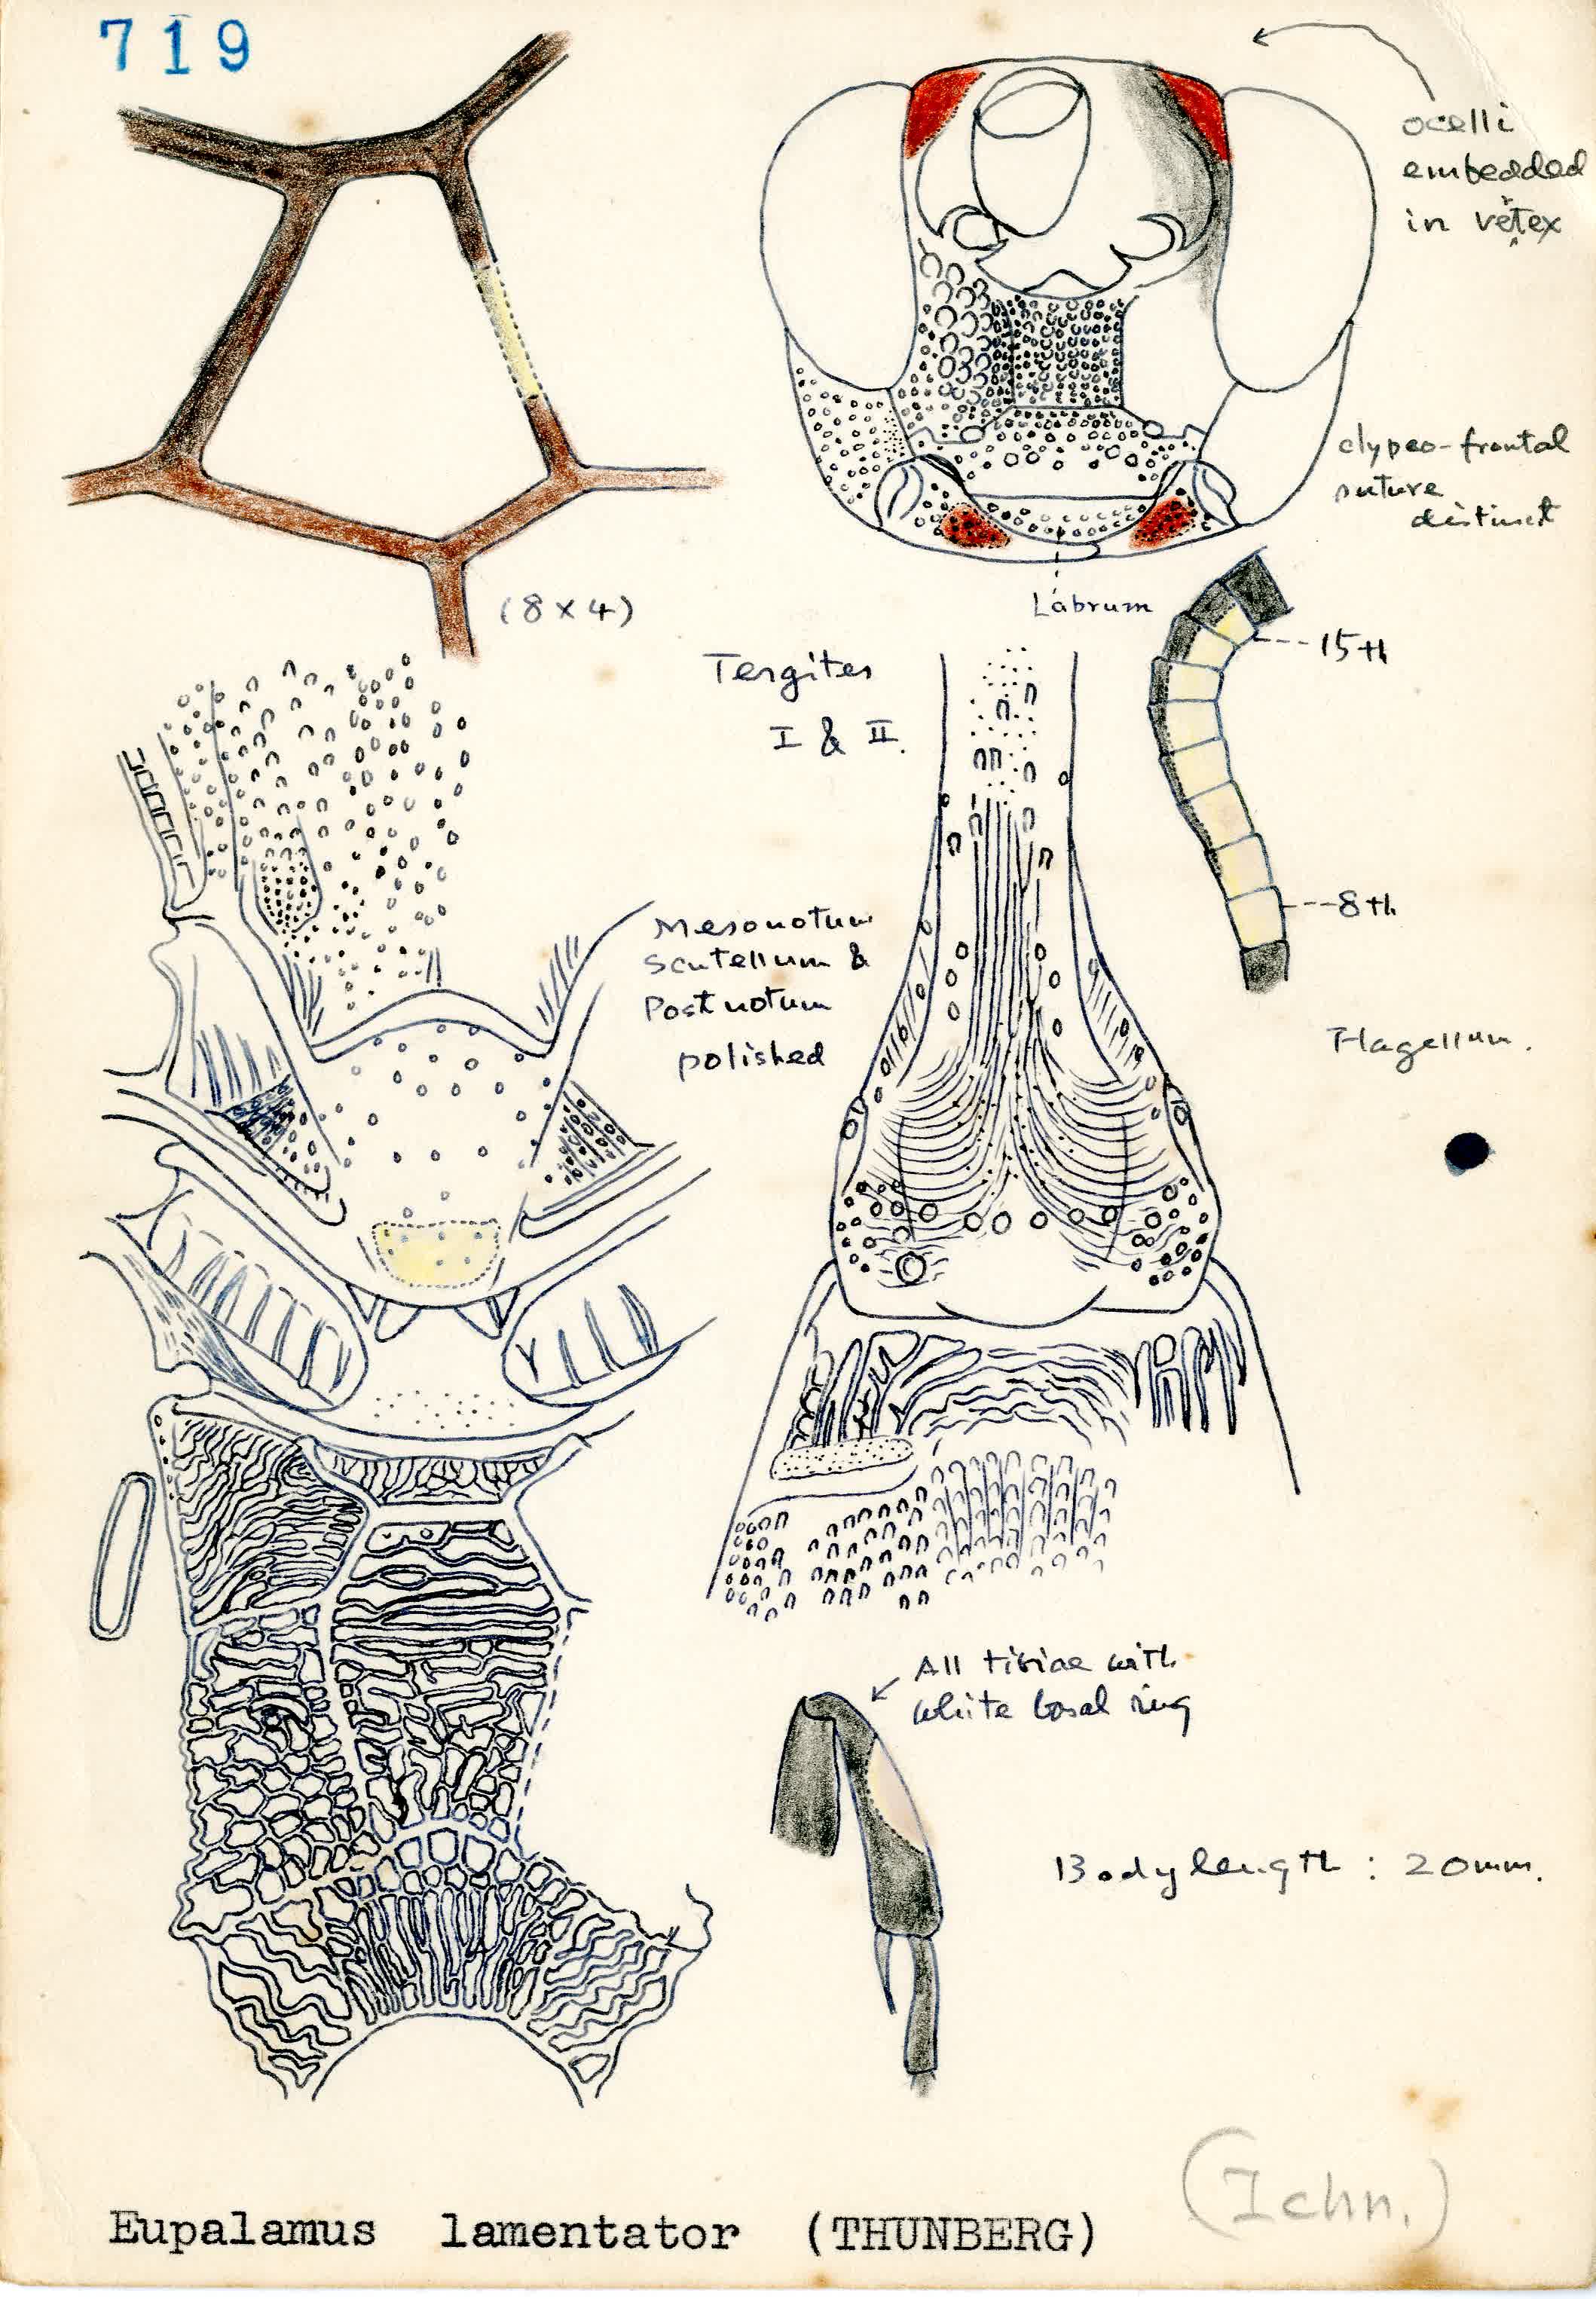 719
ocelli
embedded
in vetex
clypeo-frontal
suture
distinct
Labrum
(8 x 4)
Tergites
I & II.
15th
8th
Mesonotum
Scutellum &
Postnotum
polished
Flagellum.
All tibiae with
white basal ring
Body length : 20mm.
(Ichn.)
Eupalamus lamentator (THUNBERG)